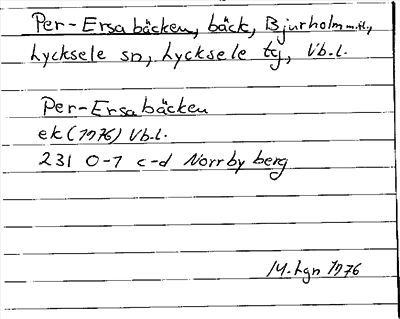 Per-Ersabäcken, bäck, Bjurholm m.fl.,
Lycksele sn, Lycksele tg, Vb.l.
Per-Ersabäcken
ek (1976) Vb.l.
231 0-1 c-d Norrbyberg
M. Lgn 1976